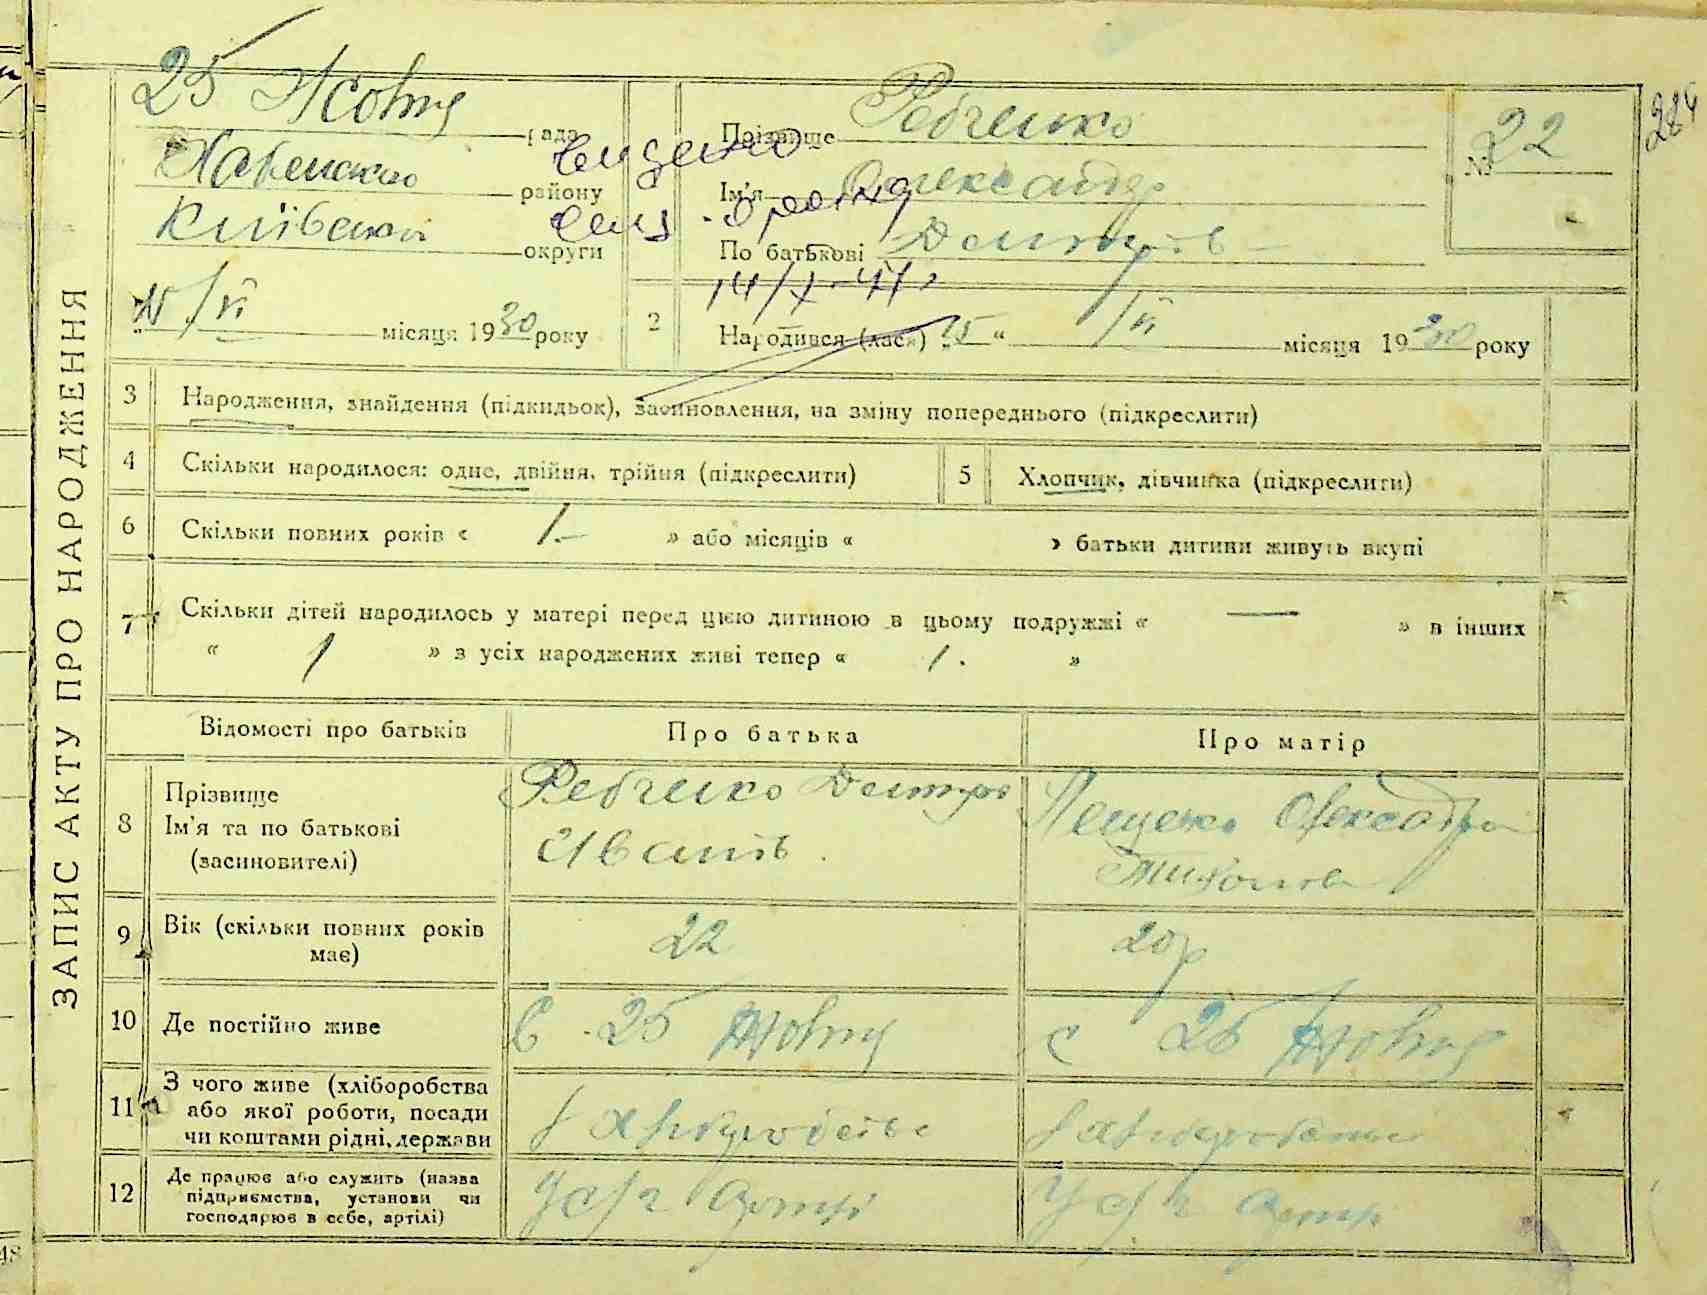 ЗАПИС АКТУ ПРО НАРОДЖЕННЯ
25 Жовтня рада
району
Київської округи
15/VI місяця 1930 року
Прізвище Ребченко
Ім'я Олександр
По батькові Дмитрів
№ 22
284
14/X-41
2 Народився (лася) „15“ /VI місяця 1930 року
3 Народження, знайдення (підкидьок), засиновлення, на зміну попереднього (підкреслити)
4 Скільки народилося: одне, двійня, трійня (підкреслити)
5 Хлопчик, дівчинка (підкреслити)
6 Скільки повних років « 1.– » або місяців « » батьки дитини живуть вкупі
7 Скільки дітей народилось у матері перед цією дитиною в цьому подружжі « — » в інших
« 1 » з усіх народжених живі тепер « 1. »
Відомості про батьків Про батька Про матір
8 Прізвище
Ім'я та по батькові
(засиновителі)
Ребченко Дмитро
Іванів.
Пещенко Олександра
9 Вік (скільки повних років
має)
22
20 р
10 Де постійно живе
с. 25 Жовтня
с 25 Жовтня
11 З чого живе (хліборобства
або якої роботи, посади
чи коштами рідні, держави
12 Де працює або служить (назва
підприємства, установи чи
господарює в себе, артілі)
У с/г артілі
У с/г артілі
48